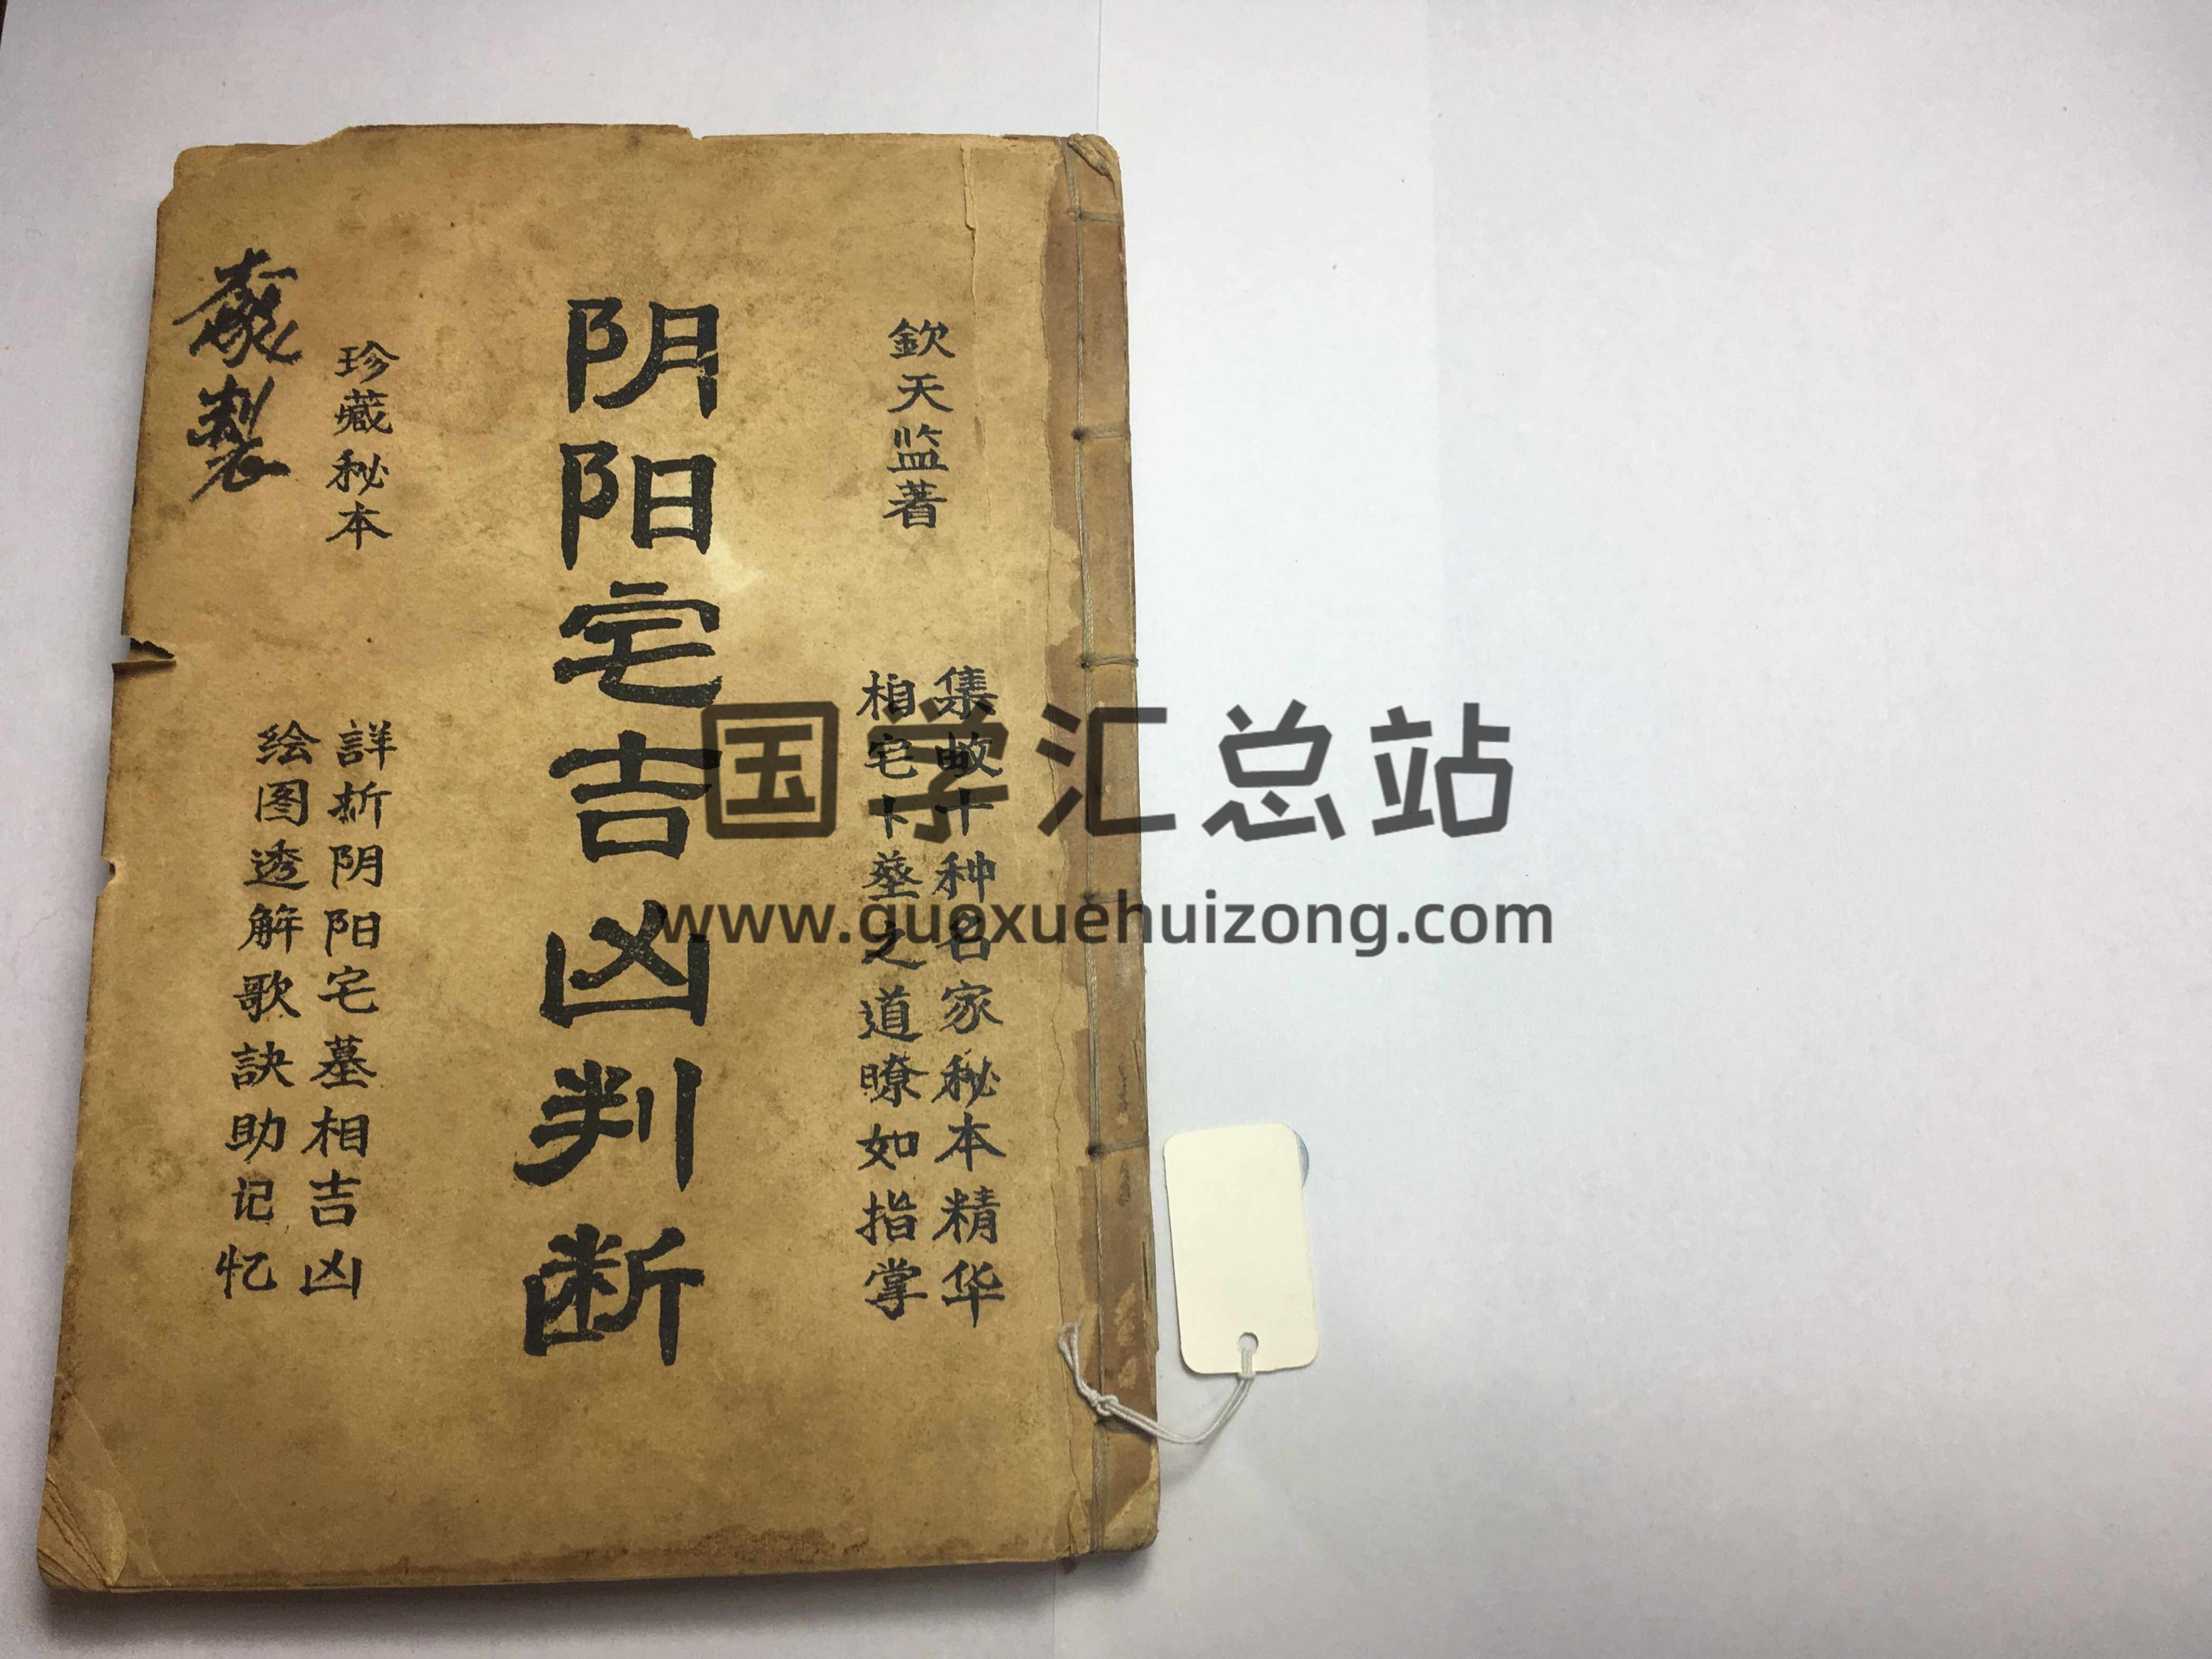 欽天监著
集数十种名家秘本精华
相宅卜塋之道暸如指掌
阴阳宅吉凶判断
珍藏秘本
詳析阴阳宅墓相吉凶
绘图透解歌訣助记忆
製
国学汇总站
www.guoxuehuizong.com